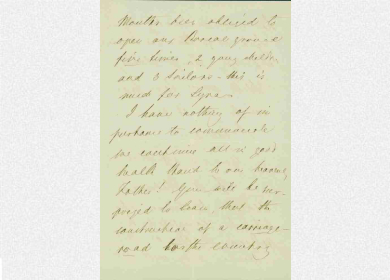 Months been obliged to
open our graves
five times, 2 young children
and 3 Sailors - this is
much for Syra.
I have nothing of im
portance to communicate
we continue all in good
health thank to our heavenly
Father! You will be sur
prized to learn that the
construction of a carriage
road to the country